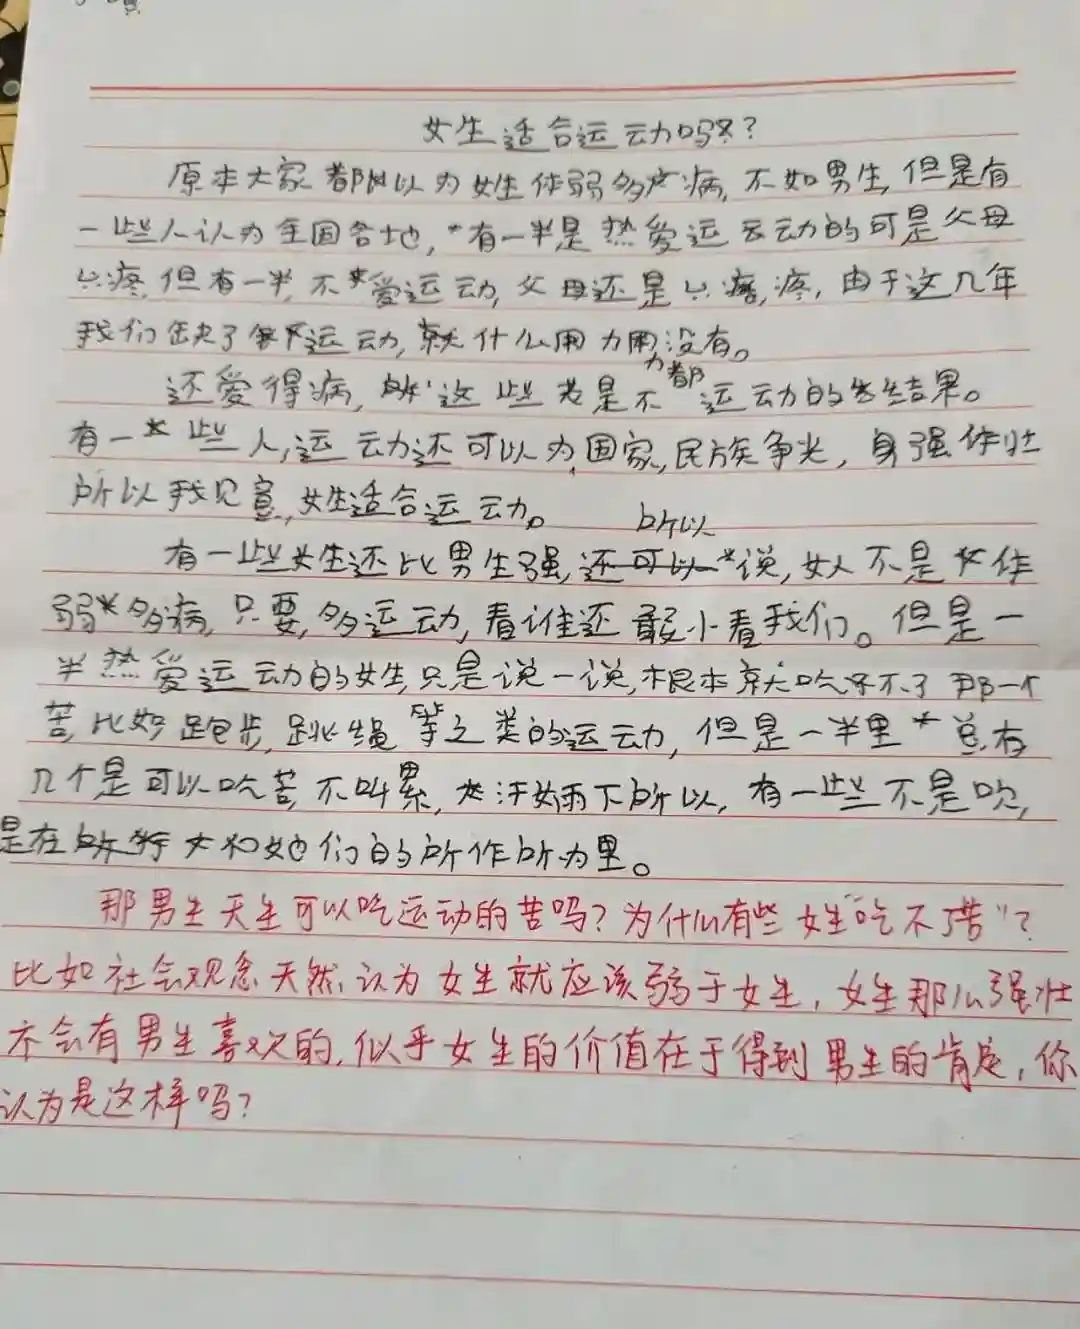 女生适合运动吗？
原本大家都以为女生体弱多病，不如男生，但是有
一些人认为全国各地，有一半是热爱运动的可是父母
心疼，但有一半不爱运动，父母还是心疼，由于这几年
我们缺了运动，就什么用力用没有。
力都
还爱得病，所以这些者是不运动的结果。
有一些人，运动还可以为国家，民族争光，身强体壮
所以我见意，女生适合运动。
所以
有一些女生还比男生强，还可以说，女人不是体
弱多病，只要，多运动，看谁还敢小看我们。但是一
半热爱运动的女生，只是说一说，根本就吃不了那一个
苦，比如跑步，跳绳等之类的运动，但是一半里总有
几个是可以吃苦，不叫累，大汗如雨下所以，有一些不是吹，
是在和她们的所作所为里。
那男生天生可以吃运动的苦吗？为什么有些女生“吃不了苦”？
比如社会观念天然认为女生就应该弱于女生，女生那么强壮
不会有男生喜欢的，似乎女生的价值在于得到男生的肯定，你
认为是这样吗？